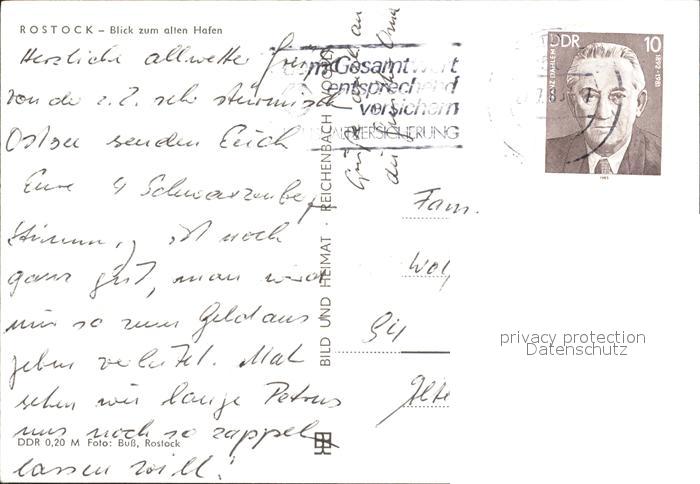 ROSTOCK – Blick zum alten Hafen
Herzliche allwetter Grüße
von der z. Z. sehr stürmisch
Ostsee senden Euch
Eure 4 Schwarzenberg
Stimmung ist noch
ganz gut, man wird
nur so zum Geld aus
geben verleitet. Mal
sehen wie lange Petrus
uns noch so zappeln
lassen will!
DDR 0,20 M Foto: Buß, Rostock
BILD UND HEIMAT · REICHENBACH
Grüße auch an
die Oma
m Gesamtwert
entsprechend
versichern
VERSICHERUNG
DDR 10
1892-1981
1985
Fam.
Wolf
94
Alte
privacy protection
Datenschutz